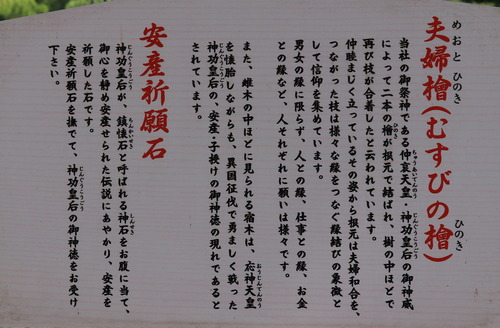 夫婦檜(むすびの檜)
めおと ひのき ひのき
当社の御祭神である仲哀天皇・神功皇后の御神威
ちゅうあいてんのう じんぐうこうごう
によって二本の檜が根元で結ばれ、樹の中ほどで
ひのき
再び枝が合着したと云われています。
仲睦まじく立っているその姿から根元は夫婦和合を、
つながった枝は様々な縁をつなぐ縁結びの象徴と
して信仰を集めています。
男女の縁に限らず、人との縁、仕事との縁、お金
との縁など、人それぞれに願いは様々です。
また、雌木の中ほどに見られる宿木は、応神天皇
おうじんてんのう
を懐胎しながらも、異国征伐で勇ましく戦った
神功皇后の、安産・子授けの御神徳の現れであると
じんぐうこうごう
されています。
安産祈願石
神功皇后が、鎮懐石と呼ばれる神石をお腹に当て、
じんぐうこうごう ちんかいせき しんせき
御心を静め安産せられた伝説にあやかり、安産を
祈願した石です。
安産祈願石を撫でて、神功皇后の御神徳をお受け
じんぐうこうごう
下さい。